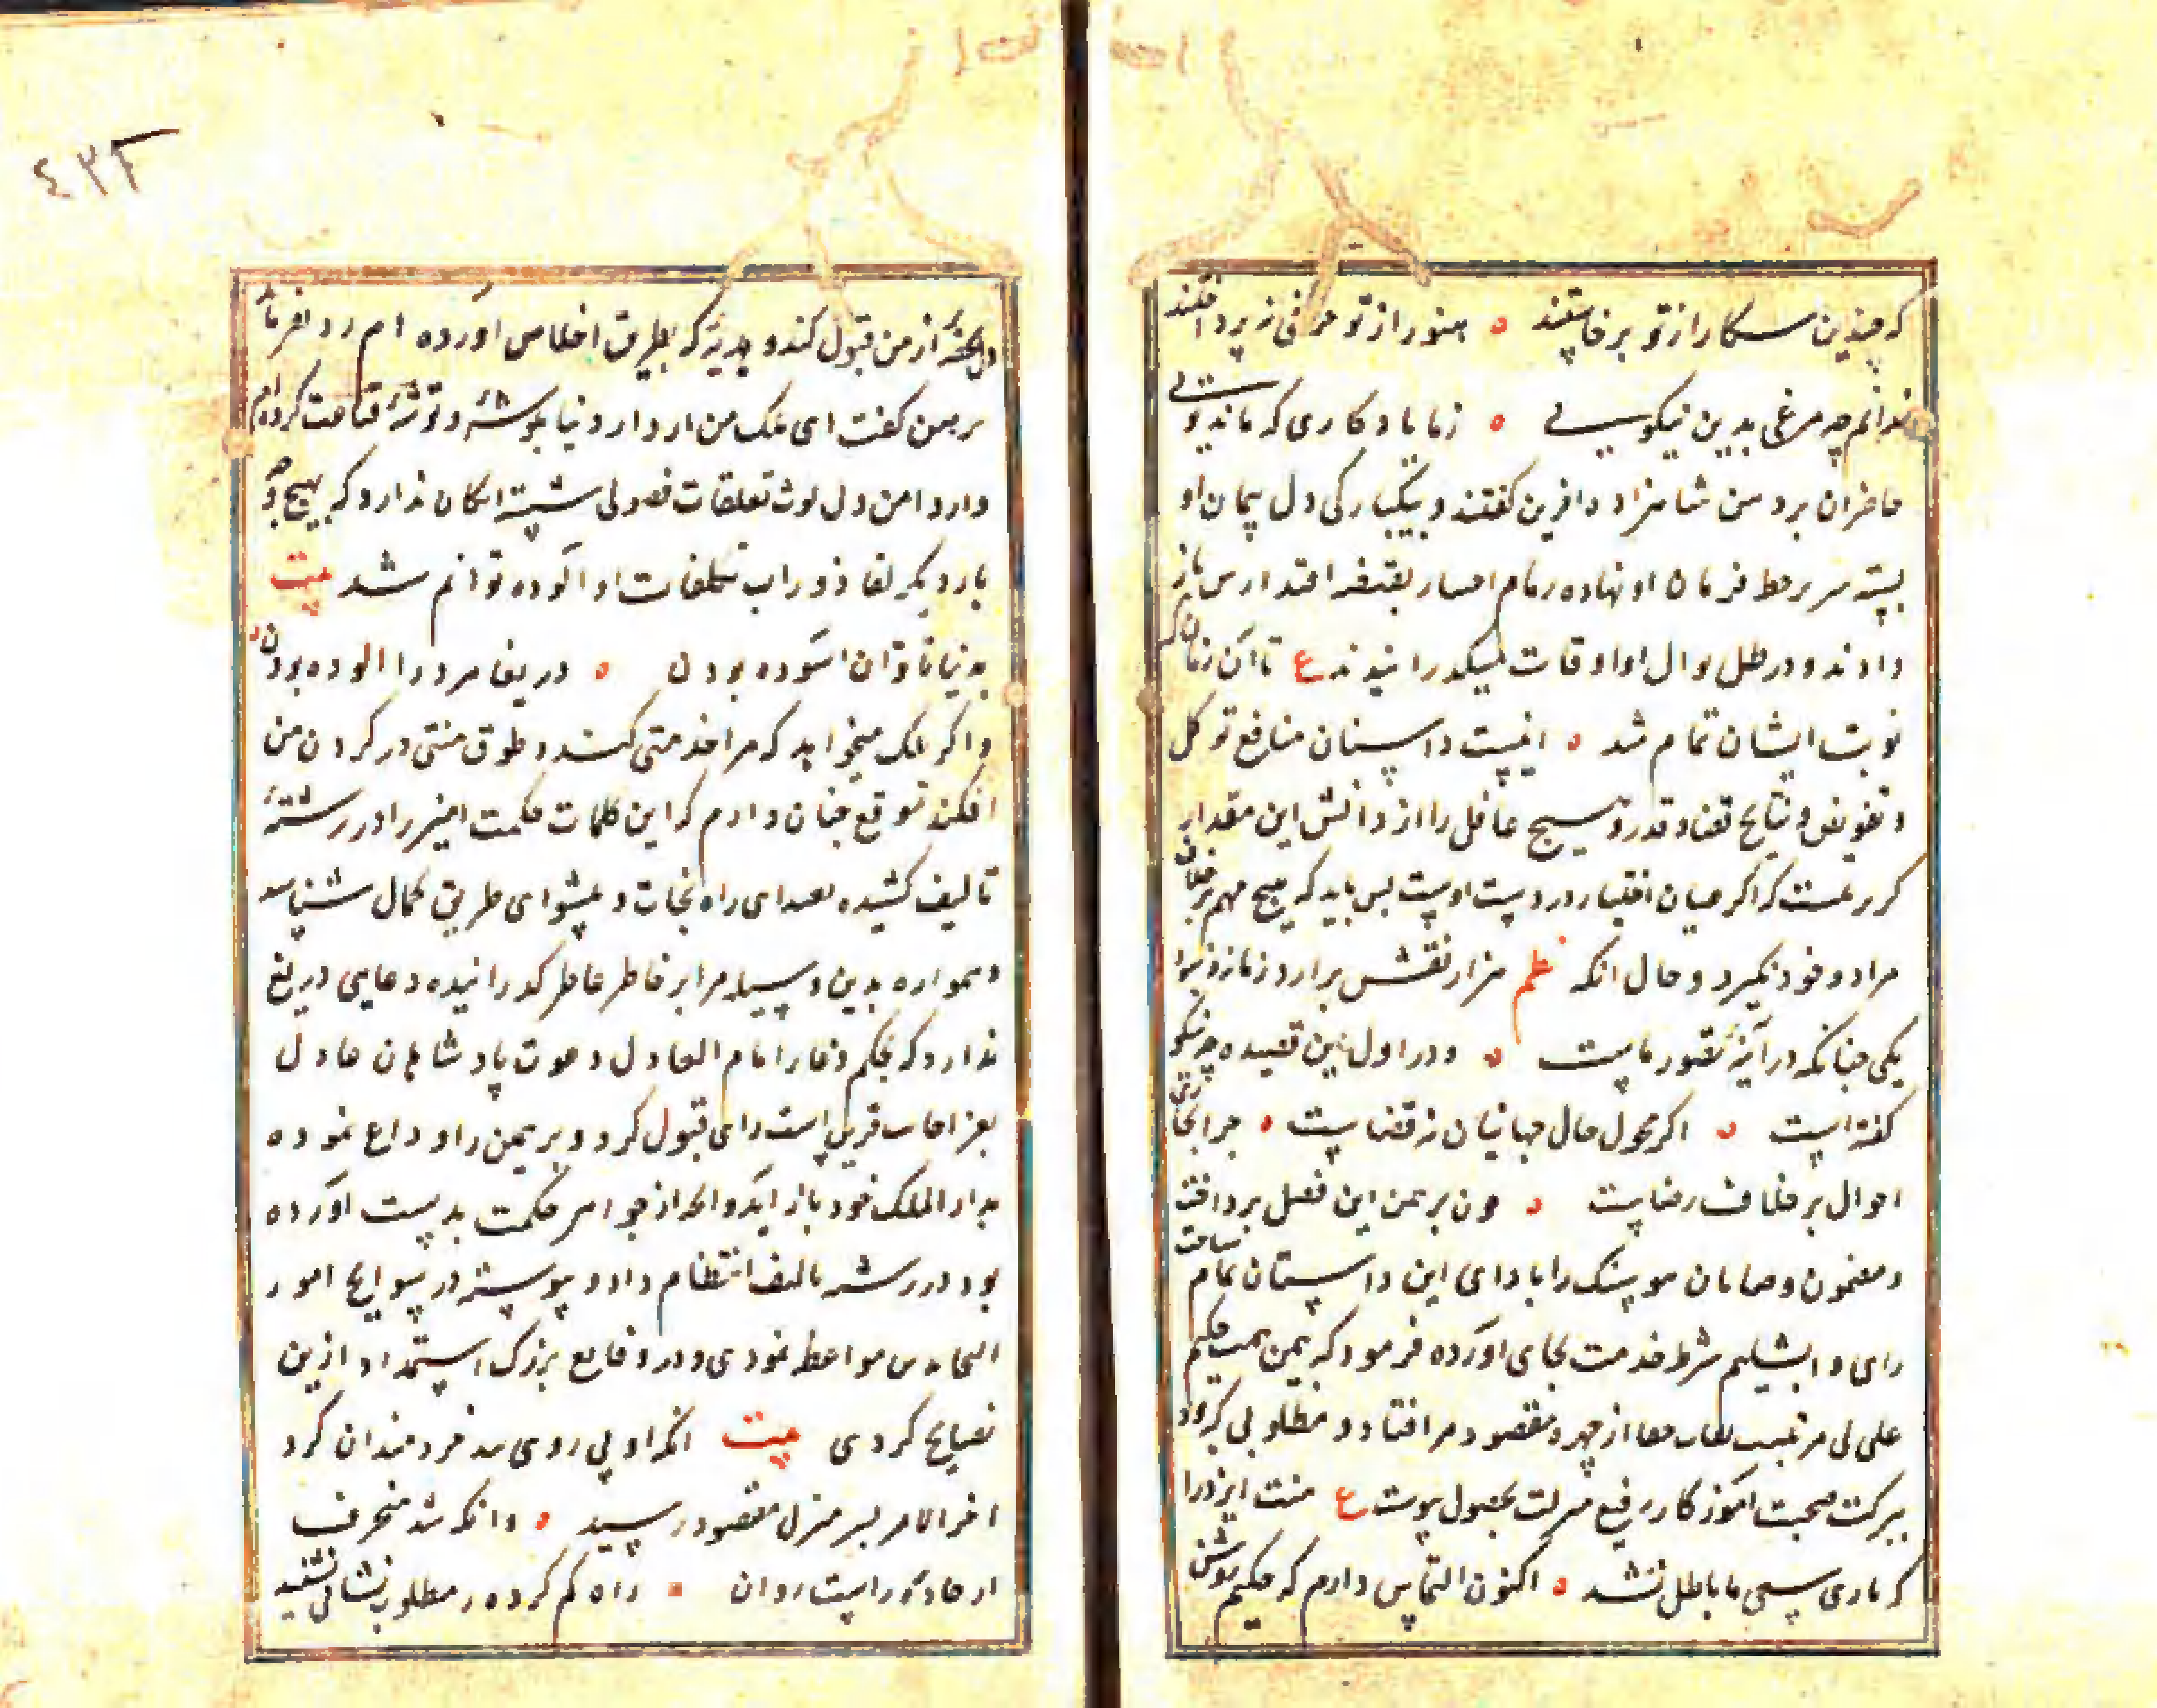 که چندین سکار از تو برخاستند ه هنوز از تو حرفی نپرداختند
ندانم چه مرغی بدین نیکویی ه زما یادکاری که ماند تویی
حاضران بر دمن شاهزاده افرین کفتند و بیکبارکی دل پیمان او
بسته سر بر خط فرمان او نهاده زمام اختیار بقبضه اقتدارس باز
دادند و در ظل نوال او اوقات میکدرانیدند ع تا آن زمان که
نوبت ایشان تمام شد ه اینست داستان منافع توکل
و تفویض و نتایج قضا و قدر و هیچ عاقل را از دانش این مقدار
که اکر عنان اختیار در دست اوست بس باید که هیچ مهم بر خلاف
مراد خود نکیرد و حال انکه نظم هزار نقش برارد زمانه و نبود
یکی چنانکه در آینه تصور ماست ه و در اول این قصیده چه نیکو
کفته است ه اکر محول حال جهانیان نه قضاست ه چرا مجاری
احوال بر خلاف رضاست ه چون برهمن این فصل برداخت
و مضمون وصایای هوسنک را بادای این داستان تمام ساخت
رای دابشلیم شرط خدمت بجای آورده فرمود که بیمن همت حکیم
نقاب از چهره مقصود برافتاد و مطلوبی که بود
ببرکت صحبت آموزکار رفیع منزلت بحصول پیوست ع منت ایزد را
که باری سعی ما باطل نشد ه اکنون التماس دارم که حکیم
از من قبول کند و هدیه که بطریق اخلاص آورده ام رد نفرماید
برهمن کفت ای ملک من از دار دنیا بکوشه و توشه قناعت کرده ام
و از دامن دل لوث تعلقات فضولی شسته امکان ندارد که بهیچ وجه
بار دیکر بقاذورات تکلفات او آلوده توانم شد بیت
به دنیا تا توان آسوده بودن ه دریغا مرد را الوده بودن
و اکر ملک میخواهد که مرا خدمتی کند و طوق منتی در کردن من
افکند توقع چنان دارم که این کلمات حکمت امیز را در رشته
تالیف کشیده مقتدای راه نجات و پیشوای طریق کمال شناسد
و همواره بدین وسیله مرا بر خاطر عاطر کدرانیده دعایی دریغ
ندارد که بحکم دعاء الامام العادل دعوت پادشاهان عادل
بعز اجابت قرین است رای قبول کرد و برهمن را وداع نموده
بدار الملک خود باز آید و انچه از جواهر حکمت بدست آورده
بود در رشته تالیف انتظام داد و پیوسته در سوانح امور
التجا بدین مواعظ نمودی و در وقایع بزرک استمداد ازین
نصایح کردی بیت انکه او پی روی خردمندان کرد
اخر الامر بسر منزل مقصود رسید ه وانکه شد منحرف
از جاده راست روان راه کم کرده ز مطلوب نشانی نشنید
٤٣٢